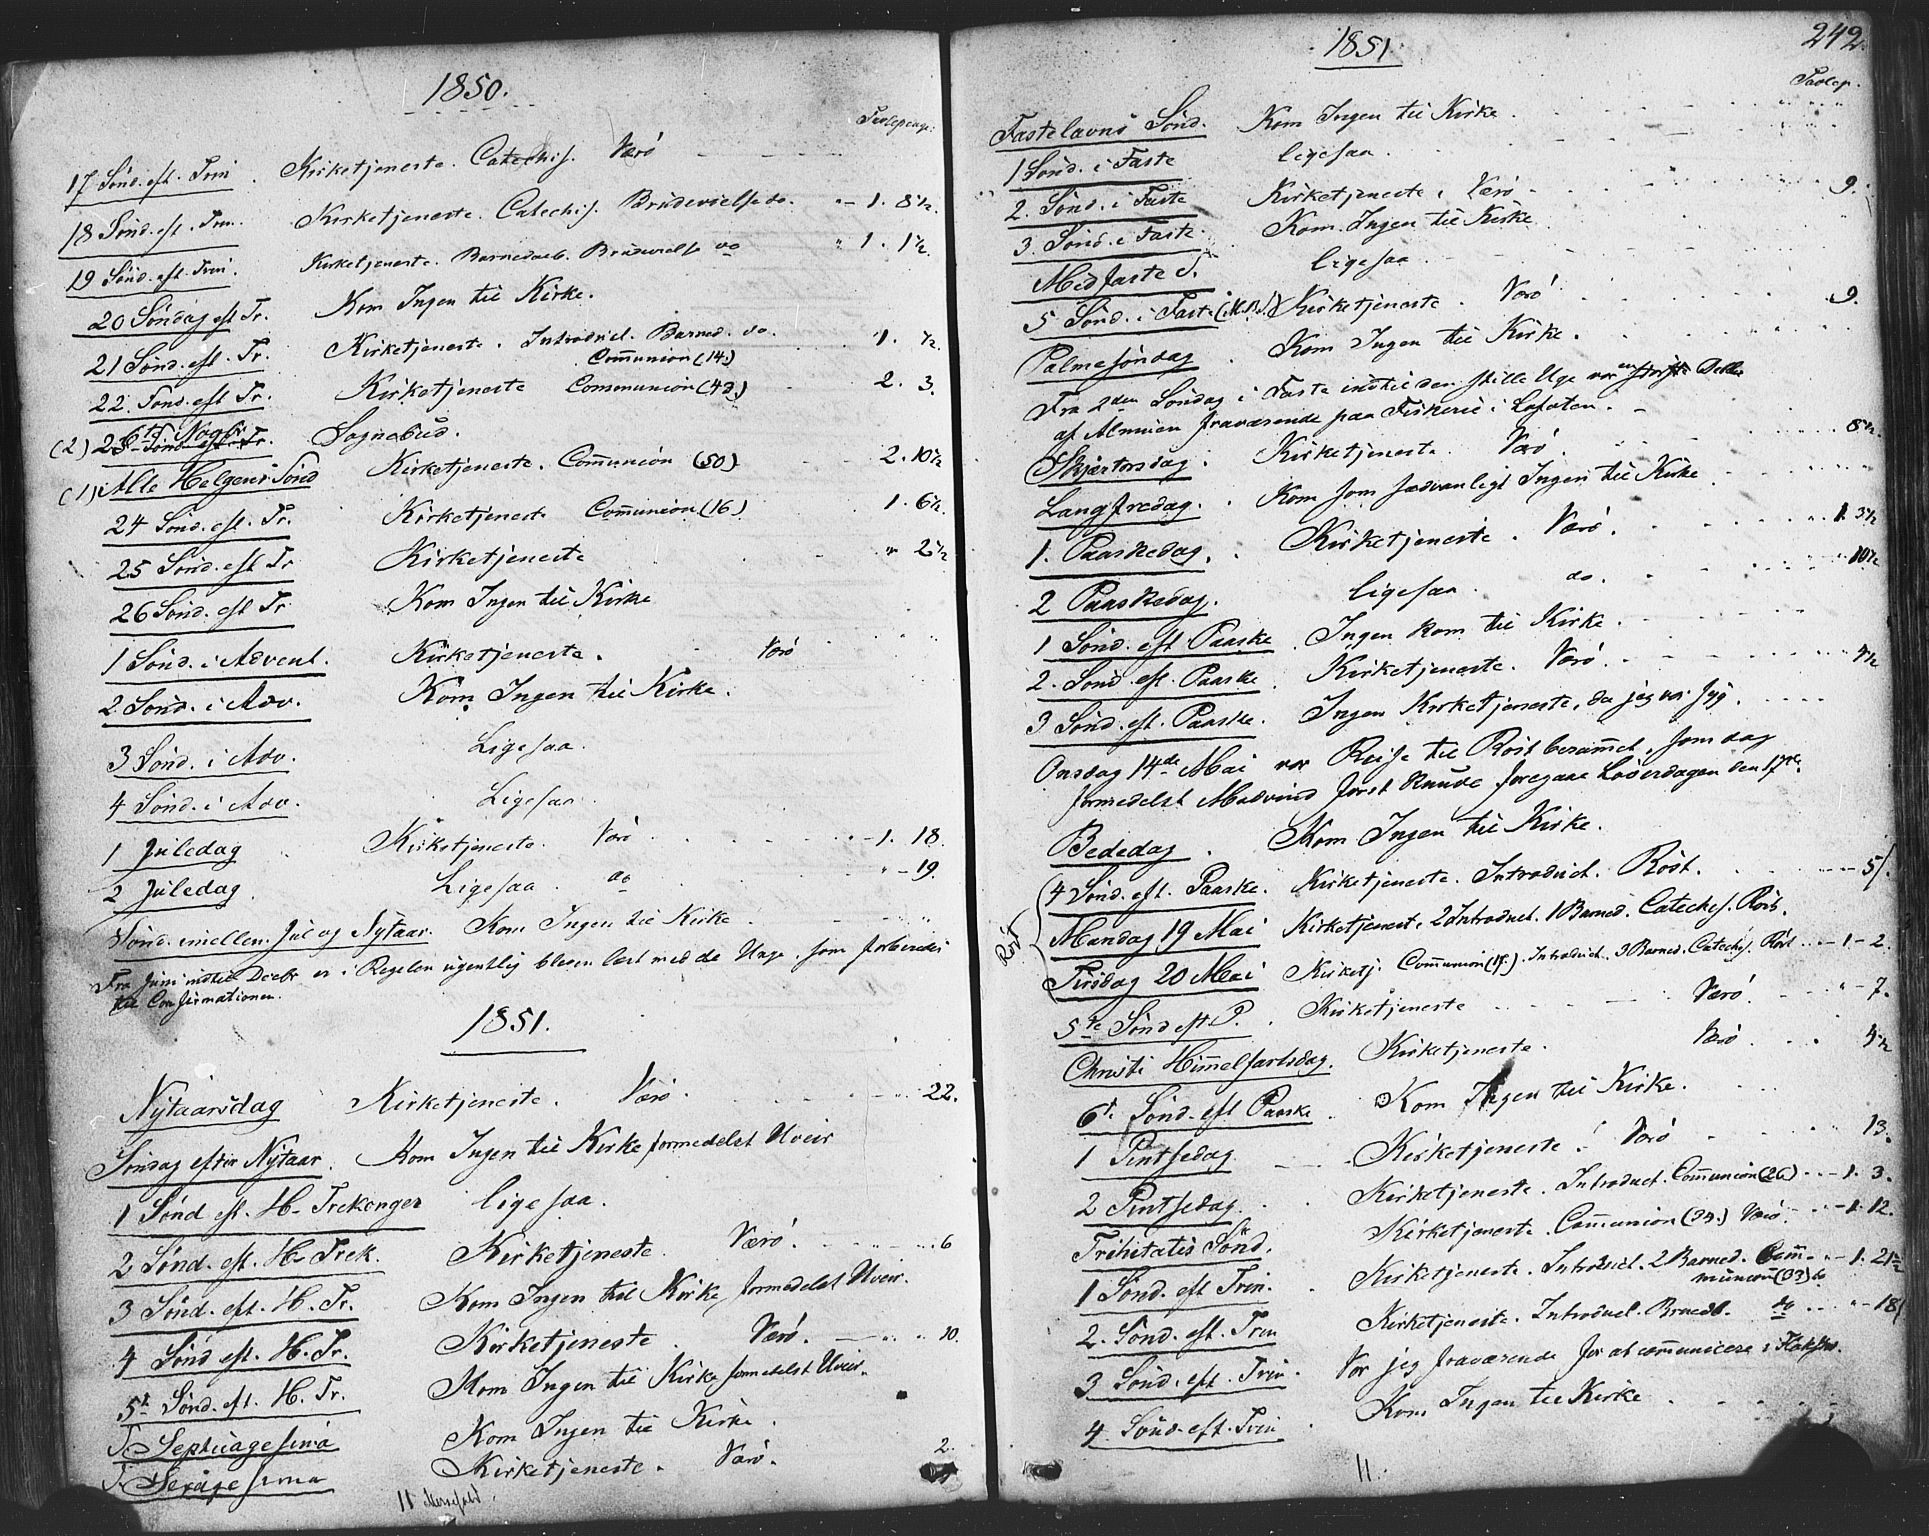 1850.
Tavlepenge.
17 Sönd. eft. Trin. Kirketjeneste. Catechis. Værö
18 Sönd. eft. Trin. Kirketjeneste. Catechis. Brudevielse do. " – 1. 8½.
19 Sönd. eft. Trin. Kirketjeneste. Barnedaab. Brudevielse do " 1. 1½.
20 Söndag eft Tr. Kom Ingen til Kirke.
21 Sönd. eft. Tr. Kirketjeneste. Introduct. Barned. do. " 1. ½.
Communion (14.)
22. Sönd. eft Tr. Kirketjeneste Communion (42.) 2. 3.
(2) 23 Sönd. eft. Tr. Sognebud.
(1) Alle Helgens Sönd Kirketjeneste. Communion (50) 2. 10½
24 Sönd. eft. Tr. Kirketjeneste Communion (16) 1. 6½.
25 Sönd. eft Tr Kirketjeneste " 2½
26 Sönd. eft Tr Kom Ingen til Kirke
1 Sönd. i Advent. Kirketjeneste. Værö
2 Sönd. i Adv. Kom Ingen til Kirke.
3 Sönd. i Adv. Ligesaa.
4 Sönd. i Adv. Ligesaa.
1 Juledag Kirketjeneste. Værö – 1. 18.
2 Juledag Ligesaa. do " – 19.
Sönd. mellem Jul og Nytaar. Kom Ingen til Kirke.
Fra Juni indtil Decbr er i Regelen ugentlig bleven læst med de Unge, som forberedes
til Confirmationen.
1851.
Nytaarsdag Kirketjeneste. Værö. 22.
Söndag efter Nytaar. Kom Ingen til Kirke formedelst Uveir
1 Sönd eft. H. Trekonger ligesaa.
2 Sönd. eft. H. Trek. Kirketjeneste. Værö. 6
3 Sönd. eft. H. Tr. Kom Ingen til Kirke, formedelst Uveir.
4 Sönd eft. H. Tr. Kirketjeneste. Værö. 10.
5te Sönd. eft. H. Tr. Kom Ingen til Kirke formedelst Uveir.
S. Septuagesima Kom Ingen til Kirke.
S. Sexagesima Kirketjeneste. Værö. 2.
11
242.
1851.
Tavlep.
Fastelavns Sönd. Kom Ingen til Kirke
1 Sönd. i Faste ligesaa
2. Sönd. i Faste Kirketjeneste. Værö 9.
3. Sönd. i Faste. Kom Ingen til Kirke
Midfaste S. ligesaa
5 Sönd. i Faste (M.B.) Kirketjeneste. Værö 9.
Palmesöndag Kom Ingen til Kirke.
Fra 2den Söndag i Faste indtil den stille Uge var en störste Delen
af Almuen fraværende paa Fiskerie i Lofoten.
Skjærtorsdag. Kirketjeneste. Værö. 8½.
Langfredag. Kom som sædvanligt Ingen til Kirke
1. Paaskedag. Kirketjeneste. Værö. 1. 3½
2 Paaskedag. ligesaa. do. 10½
1 Sönd. eft Paaske. Ingen kom til Kirke.
2. Sönd. eft. Paaske. Kirketjeneste. Værö. 4½
3 Sönd. eft. Paaske. Ingen Kirketjeneste, da jeg var syg.
Onsdag 14de Mai var Reise til Röst berammet, som dog
formedelst Modvind först kunde foregaae Löverdagen den 17de.
Bededag. Kom Ingen til Kirke.
Röst
4 Sönd. eft. Paaske. Kirketjeneste. Introduct. Röst. 5.
Mandag 19 Mai Kirketjenest. 2 Introduct. 1 Barned. Cateches. Röst.
Tirsdag 20 Mai Kirketj. Communion (19.) Introduct. 3 Barned. Catechs. Röst – 1 – 2.
5te Sönd eft P. Kirketjeneste Værö. " – 7.
Christi Himmelfartsdag. Kirketjeneste. Værö 4½
6te Sönd. eft Paaske Kom Ingen til Kirke.
1 Pintsedag Kirketjeneste. Værö 13.
2 Pintsedag Kirketjeneste. Introduct. Communion (26) – 1. 3.
Trinitatis Sönd. Kirketjeneste. Communion (34.) Værö. – 1. 12.
1 Sönd. eft Trin. Kirketjeneste. Introduct. 2 Barned. Com- – 1. 21½
munion (33) do
2. Sönd. eft. Trin Kirketjeneste. Introduct. Brudev. do " – 18
3 Sönd. eft. Trin. Var jeg fraværende for at communicere i
4 Sönd. eft. Trin Kom Ingen til Kirke
11.